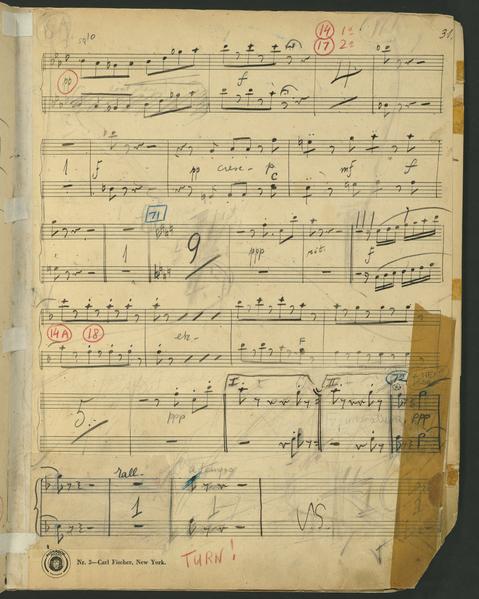 14 1º
17 2º
31.
solo
pp
f
4
1
f
pp cresc - p
mf
f
1
71
9
ppp
rit.
f
14A
18
5.
ppp
I
II
72
ppp
rall-
1
1
VS.
1
Nr. 3—Carl Fischer, New York.
TURN!